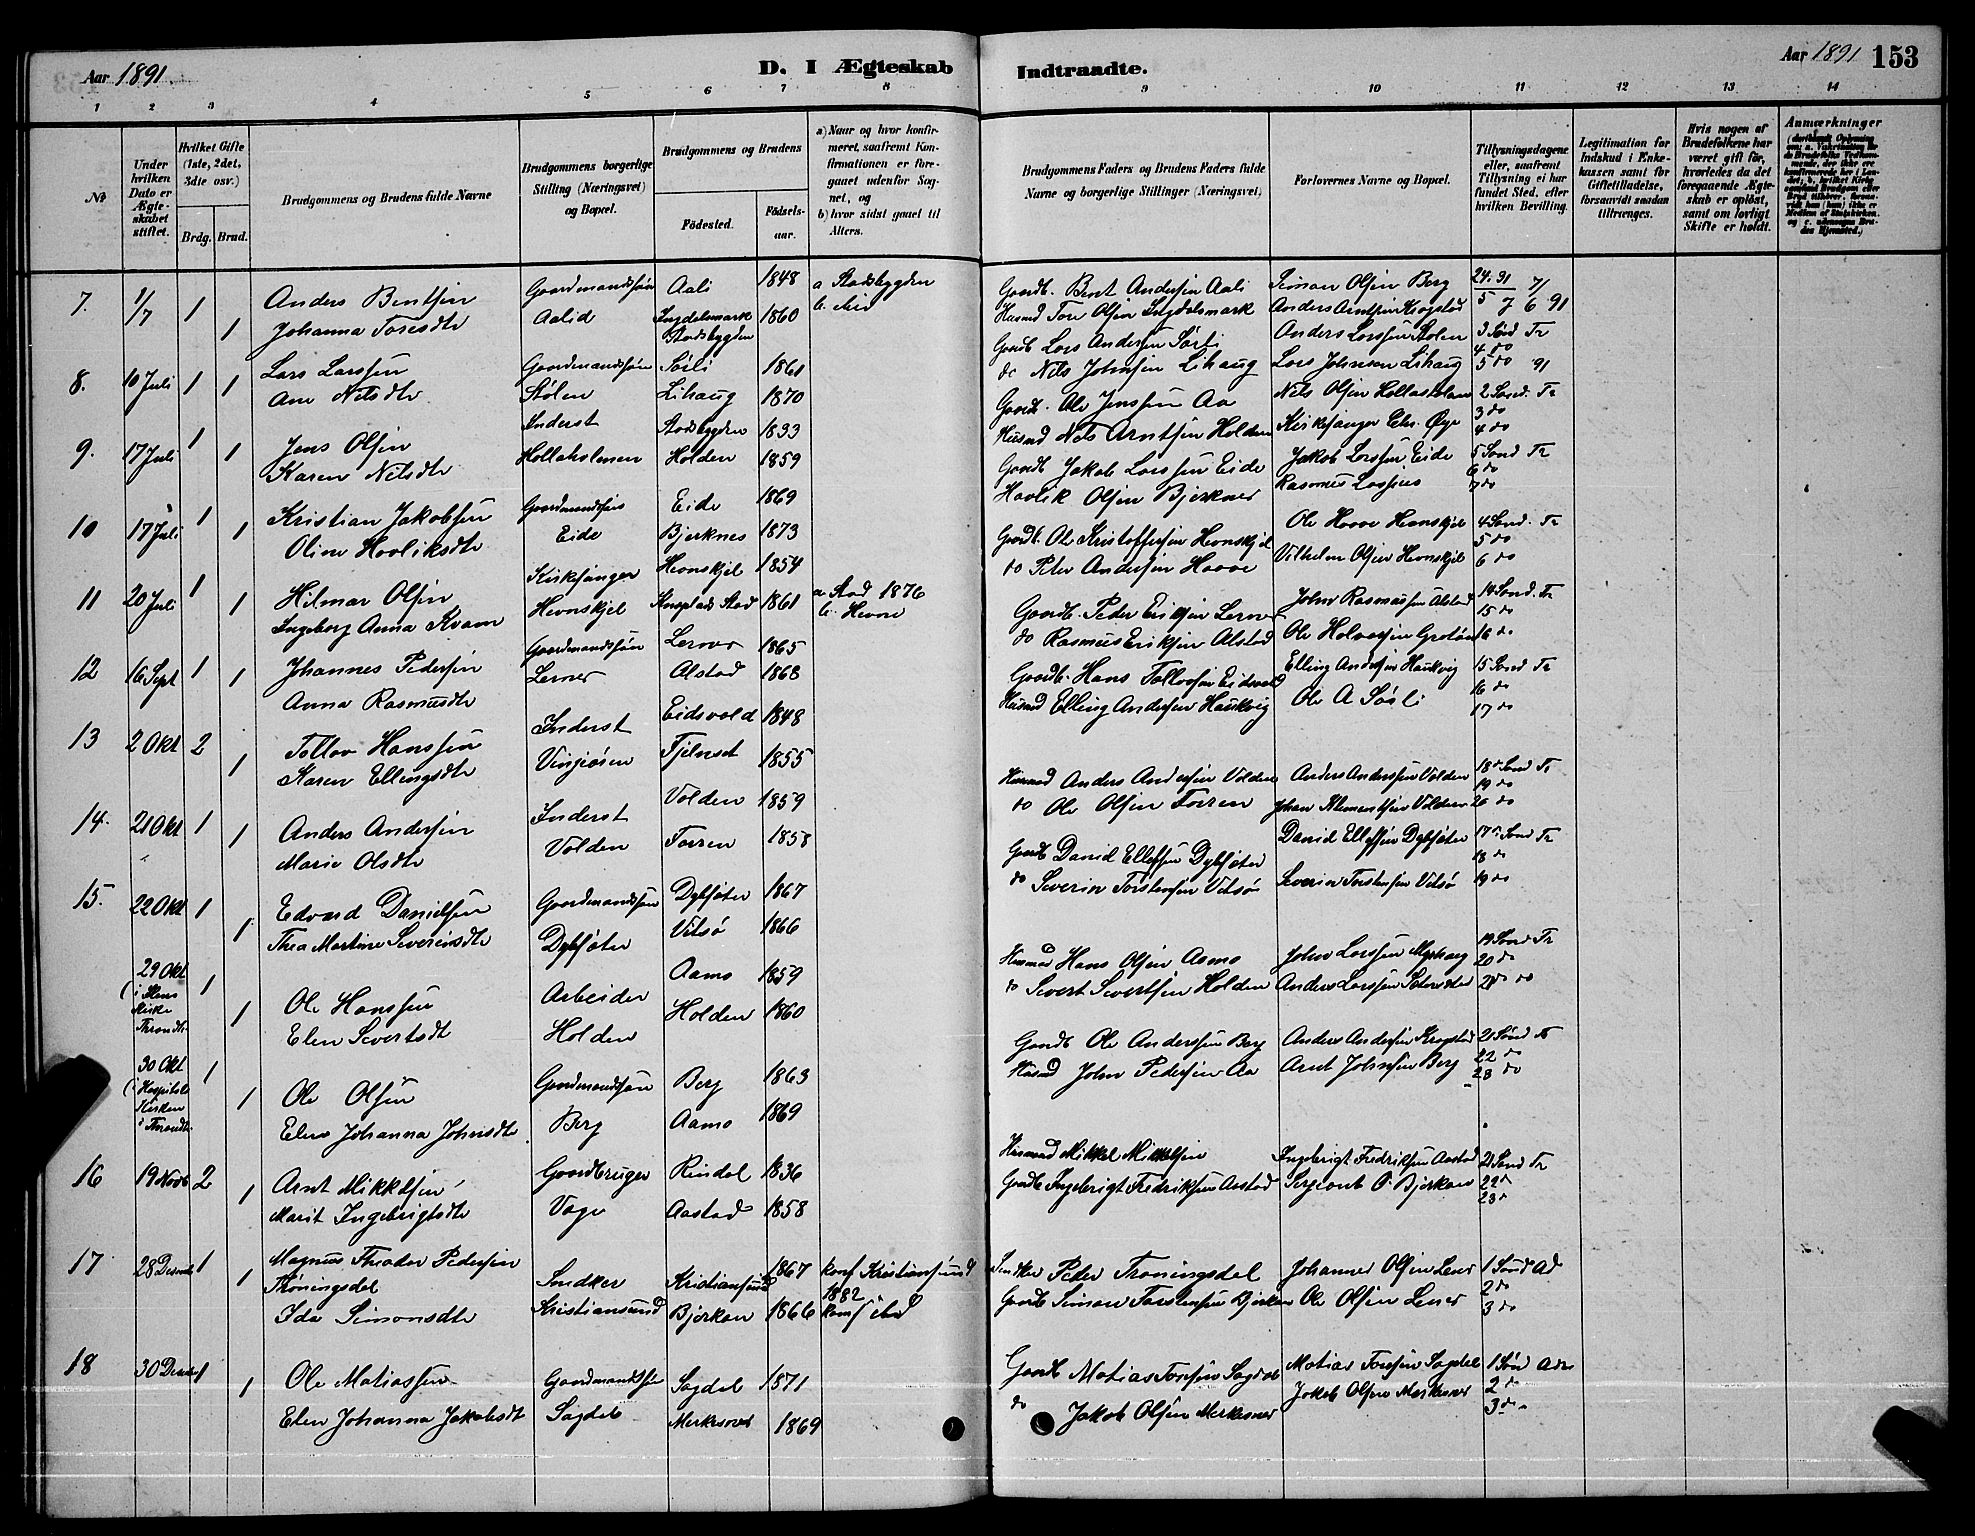 Aar 1891.
D. I Ægteskab Indtraadte.
Aar 1891 153
1 2 3 4 5 6 7 8 9 10 11 12 13 14
No
Under hvilken Dato er Ægteskabet stiftet.
Hvilket Gifte (1ste, 2det, 3die osv.)
Brdg. Brud.
Brudgommens og Brudens fulde Navne
Brudgommens borgerlige Stilling (Næringsvei) og Bopæl.
Brudgommens og Brudens
Fødested.
Fødselsaar.
a) Naar og hvor konfirmeret, saafremt Konfirmationen er foregaaet udenfor Sognet, og
b) hvor sidst gaaet til Alters.
Brudgommens Faders og Brudens Faders fulde Navne og borgerlige Stillinger (Næringsvei)
Forlovernes Navne og Bopæl.
Tillysningsdagene eller, saafremt Tillysning ei har fundet Sted, efter hvilken Bevilling.
Legitimation for Indskud i Enkekassen samt for Giftetilladelse, forsaavidt saadan tiltrænges.
Hvis nogen af Brudefolkene har været gift før, hvorledes da det foregaaende Ægteskab er opløst, samt om lovligt Skifte er holdt.
Anmærkninger
7. 1/7 1 Anders Bentsen Gaardmandssøn Aali 1848 a Stadsbygden Gaardb. Bent Andersen Aali Simon Olsen Berg 24. 31
1 Johanna Toresdtr Aalid Ingdelsmark Stadsbygden 1860 b. ibid Husmd Tore Olsen Ingdelsmark Anders Arntsen Krogstad 5 7 6 91
8. 10 Juli 1 1 Lars Larssen Gaardmandssøn Sørli 1861 Gaardb Lars Andersen Sørli Anders Larssen Stølen 3 Sønd Tr
Ane Nilsdtr. Stølen Lihaug 1870 do Nils Johnsen Lihaug Lars Johnsen Lihaug 4 do 5 do 91
9. 17 Juli 1 1 Jens Olsen Inderst Stadsbygden 1833 Gaardb. Ole Jenssen Aa Nils Olsen Hollaholmen 2 Sønd. Tr
Karen Nilsdtr Hollaholmen Holden 1859 Husmd Nils Arntsen Holden Kirkesanger Chr. Øye 3 do 4 do
10 17 Juli 1 1 Kristian Jakobsen Gaardmandssøn Eide 1869 Gaardb Jakob Larssen Eide Jakob Larssen Eide 5 Sønd Tr
Oline Havliksdtr Eide Bjerknes 1873 Havlik Olsen Bjerknes Rasmus 6 do 7 do
11 20 Juli 1 1 Hilmar Olsen Kirkesanger Hevnskjel 1854 a Stod 1876 Gaardb. Ole Kristoffersen Hevnskjel Ole Hevnskjel 4 Sønd. Tr
Ingeborg Anna Kvam Hevnskjel Stod 1861 b. Hevne do Peter Andersen Vilhelm Olsen Hevnskjel 5 do 6 do
12 16 Sept 1 1 Johannes Pedersen Gaardmandssøn 1865 Gaardb. Peder Eriksen John Rasmussen Alstad 14 Sønd. Tr
Anna Rasmusdtr Alstad 1868 do Rasmus Eriksen Alstad Ole 15 do 16 do
13 2 Okt 2 1 Tollov Hanssen Inderst Eidsvold 1848 Gaardb. Hans Tollovsen Eidsvold Elling Andersen Haukvig 15 Sønd Tr
Karen Ellingsdtr Vinjeøren 1855 Husmd Elling Andersen Haukvig Ole A Sørli 16 do 17 do
14. 21 Okt 1 1 Anders Andersen Inderst Volden 1859 Husmd Anders Andersen Volden Anders Anderssen Volden 18 Sønd Tr
Marie Olsdtr Volden Forren 1858 do Ole Olsen Forren Johan Klementsen Volden 19 do 20 do
15. 22 Okt 1 1 Edvard Danielsen Gaardmandssøn Dybsæter 1867 Gaardb Daniel Ellefsen Dybsæter Daniel Ellefsen Dybsæter 17 Sønd Tr
Thea Martine Severinsdtr Dybsæter Vitsø 1866 do Severin Torstensen Vitsø Severin Torstensen Vitsø 18 do 19 do
29 Okt (i Ilens Kirke Throndh. 1 1 Ole Hanssen Arbeider Aamo 1859 Husmd Hans Olsen Aamo John Larssen Myrhaug 19 Sønd Tr
Elen Sivertsdtr Holden Holden 1860 do Sivert Sivertsen Holden Anders Larssen 20 do 21 do
30 Okt (i Hospitals Kirken i Throndh. 1 1 Ole Olsen Gaardmandssøn Berg 1863 Gaardb Ole Anderssen Berg Anders Andersen Krogstad 21 Sønd Tr
Elen Johanna Johnsdtr Berg Aamo 1869 Husmd John Pedersen Aa Arnt Johnsen Berg 22 do 23 do
16 19 Novb 2 1 Arnt Mikkelsen Gaardbruger Rindal 1836 Husmd Mikkel Mikkelsen Ingebrigt Fredriksen Aastad 21 Sønd Tr
Marit Ingebrigtsdtr Vage Aastad 1858 Gaardb Ingebrigt Fredriksen Aastad Sergeant O. Bjerkan 22 do 23 do
17 28 Decemb 1 1 Magnus Theodor Pedersen Thøningsdal Snedker Kristiansund 1867 konf Kristiansund 1882 Snedker Peder Troningsdal Johannes Olsen 1 Sønd Ad
Ida Simonsdtr Kristiansund Bjerkan 1866 konf ibid Gaardb Simon Torstensen Bjerkan Ole Olsen 2 do 3 do
18 30 Decemb 1 1 Ole Matiassen Gaardmandssøn Sagdal 1871 Gaardb Matias Torsen Sagdal Matias Torsen Sagdal 1 Sønd Adv
Elen Johanna Jakobsdt Sagdal 1869 do Jakob Olsen Merkesnes Jakob Olsen Merkesnes 2 do 3 do